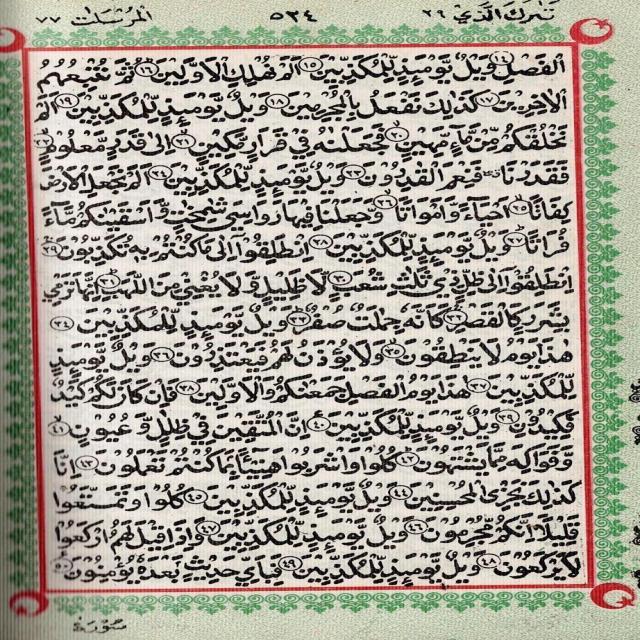 تبرك الذي ٢٩
٥٢٤
المرسلت ٧٧
الْفَصْلِ ۝١٤ وَيْلٌ يَّوْمَئِذٍ لِّلْمُكَذِّبِيْنَ ۝١٥ اَلَمْ نُهْلِكِ الْاَوَّلِيْنَ ۝١٦ ثُمَّ نُتْبِعُهُمُ
الْاٰخِرِيْنَ ۝١٧ كَذٰلِكَ نَفْعَلُ بِالْمُجْرِمِيْنَ ۝١٨ وَيْلٌ يَّوْمَئِذٍ لِّلْمُكَذِّبِيْنَ ۝١٩ اَلَمْ
نَخْلُقْكُّمْ مِّنْ مَّآءٍ مَّهِيْنٍ ۝٢٠ فَجَعَلْنٰهُ فِيْ قَرَارٍ مَّكِيْنٍ ۝٢١ اِلٰى قَدَرٍ مَّعْلُوْمٍ ۝٢٢
فَقَدَرْنَا فَنِعْمَ الْقٰدِرُوْنَ ۝٢٣ وَيْلٌ يَّوْمَئِذٍ لِّلْمُكَذِّبِيْنَ ۝٢٤ اَلَمْ نَجْعَلِ الْاَرْضَ
كِفَاتًا ۝٢٥ اَحْيَآءً وَّاَمْوَاتًا ۝٢٦ وَّجَعَلْنَا فِيْهَا رَوَاسِيَ شٰمِخٰتٍ وَّاَسْقَيْنٰكُمْ مَّآءً
فُرَاتًا ۝٢٧ وَيْلٌ يَّوْمَئِذٍ لِّلْمُكَذِّبِيْنَ ۝٢٨ اِنْطَلِقُوْٓا اِلٰى مَا كُنْتُمْ بِهٖ تُكَذِّبُوْنَ ۝٢٩
اِنْطَلِقُوْٓا اِلٰى ظِلٍّ ذِيْ ثَلٰثِ شُعَبٍ ۝٣٠ لَّا ظَلِيْلٍ وَّلَا يُغْنِيْ مِنَ اللَّهَبِ ۝٣١ اِنَّهَا تَرْمِيْ
بِشَرَرٍ كَالْقَصْرِ ۝٣٢ كَاَنَّهٗ جِمٰلَتٌ صُفْرٌ ۝٣٣ وَيْلٌ يَّوْمَئِذٍ لِّلْمُكَذِّبِيْنَ ۝٣٤
هٰذَا يَوْمُ لَا يَنْطِقُوْنَ ۝٣٥ وَلَا يُؤْذَنُ لَهُمْ فَيَعْتَذِرُوْنَ ۝٣٦ وَيْلٌ يَّوْمَئِذٍ
لِّلْمُكَذِّبِيْنَ ۝٣٧ هٰذَا يَوْمُ الْفَصْلِ جَمَعْنٰكُمْ وَالْاَوَّلِيْنَ ۝٣٨ فَاِنْ كَانَ لَكُمْ كَيْدٌ
فَكِيْدُوْنِ ۝٣٩ وَيْلٌ يَّوْمَئِذٍ لِّلْمُكَذِّبِيْنَ ۝٤٠ اِنَّ الْمُتَّقِيْنَ فِيْ ظِلٰلٍ وَّعُيُوْنٍ ۝٤١
وَّفَوَاكِهَ مِمَّا يَشْتَهُوْنَ ۝٤٢ كُلُوْا وَاشْرَبُوْا هَنِيْٓئًا بِمَا كُنْتُمْ تَعْمَلُوْنَ ۝٤٣ اِنَّا
كَذٰلِكَ نَجْزِي الْمُحْسِنِيْنَ ۝٤٤ وَيْلٌ يَّوْمَئِذٍ لِّلْمُكَذِّبِيْنَ ۝٤٥ كُلُوْا وَتَمَتَّعُوْا
قَلِيْلًا اِنَّكُمْ مُّجْرِمُوْنَ ۝٤٦ وَيْلٌ يَّوْمَئِذٍ لِّلْمُكَذِّبِيْنَ ۝٤٧ وَاِذَا قِيْلَ لَهُمُ ارْكَعُوْا
لَا يَرْكَعُوْنَ ۝٤٨ وَيْلٌ يَّوْمَئِذٍ لِّلْمُكَذِّبِيْنَ ۝٤٩ فَبِاَيِّ حَدِيْثٍۭ بَعْدَهٗ يُؤْمِنُوْنَ ۝٥٠
سورة